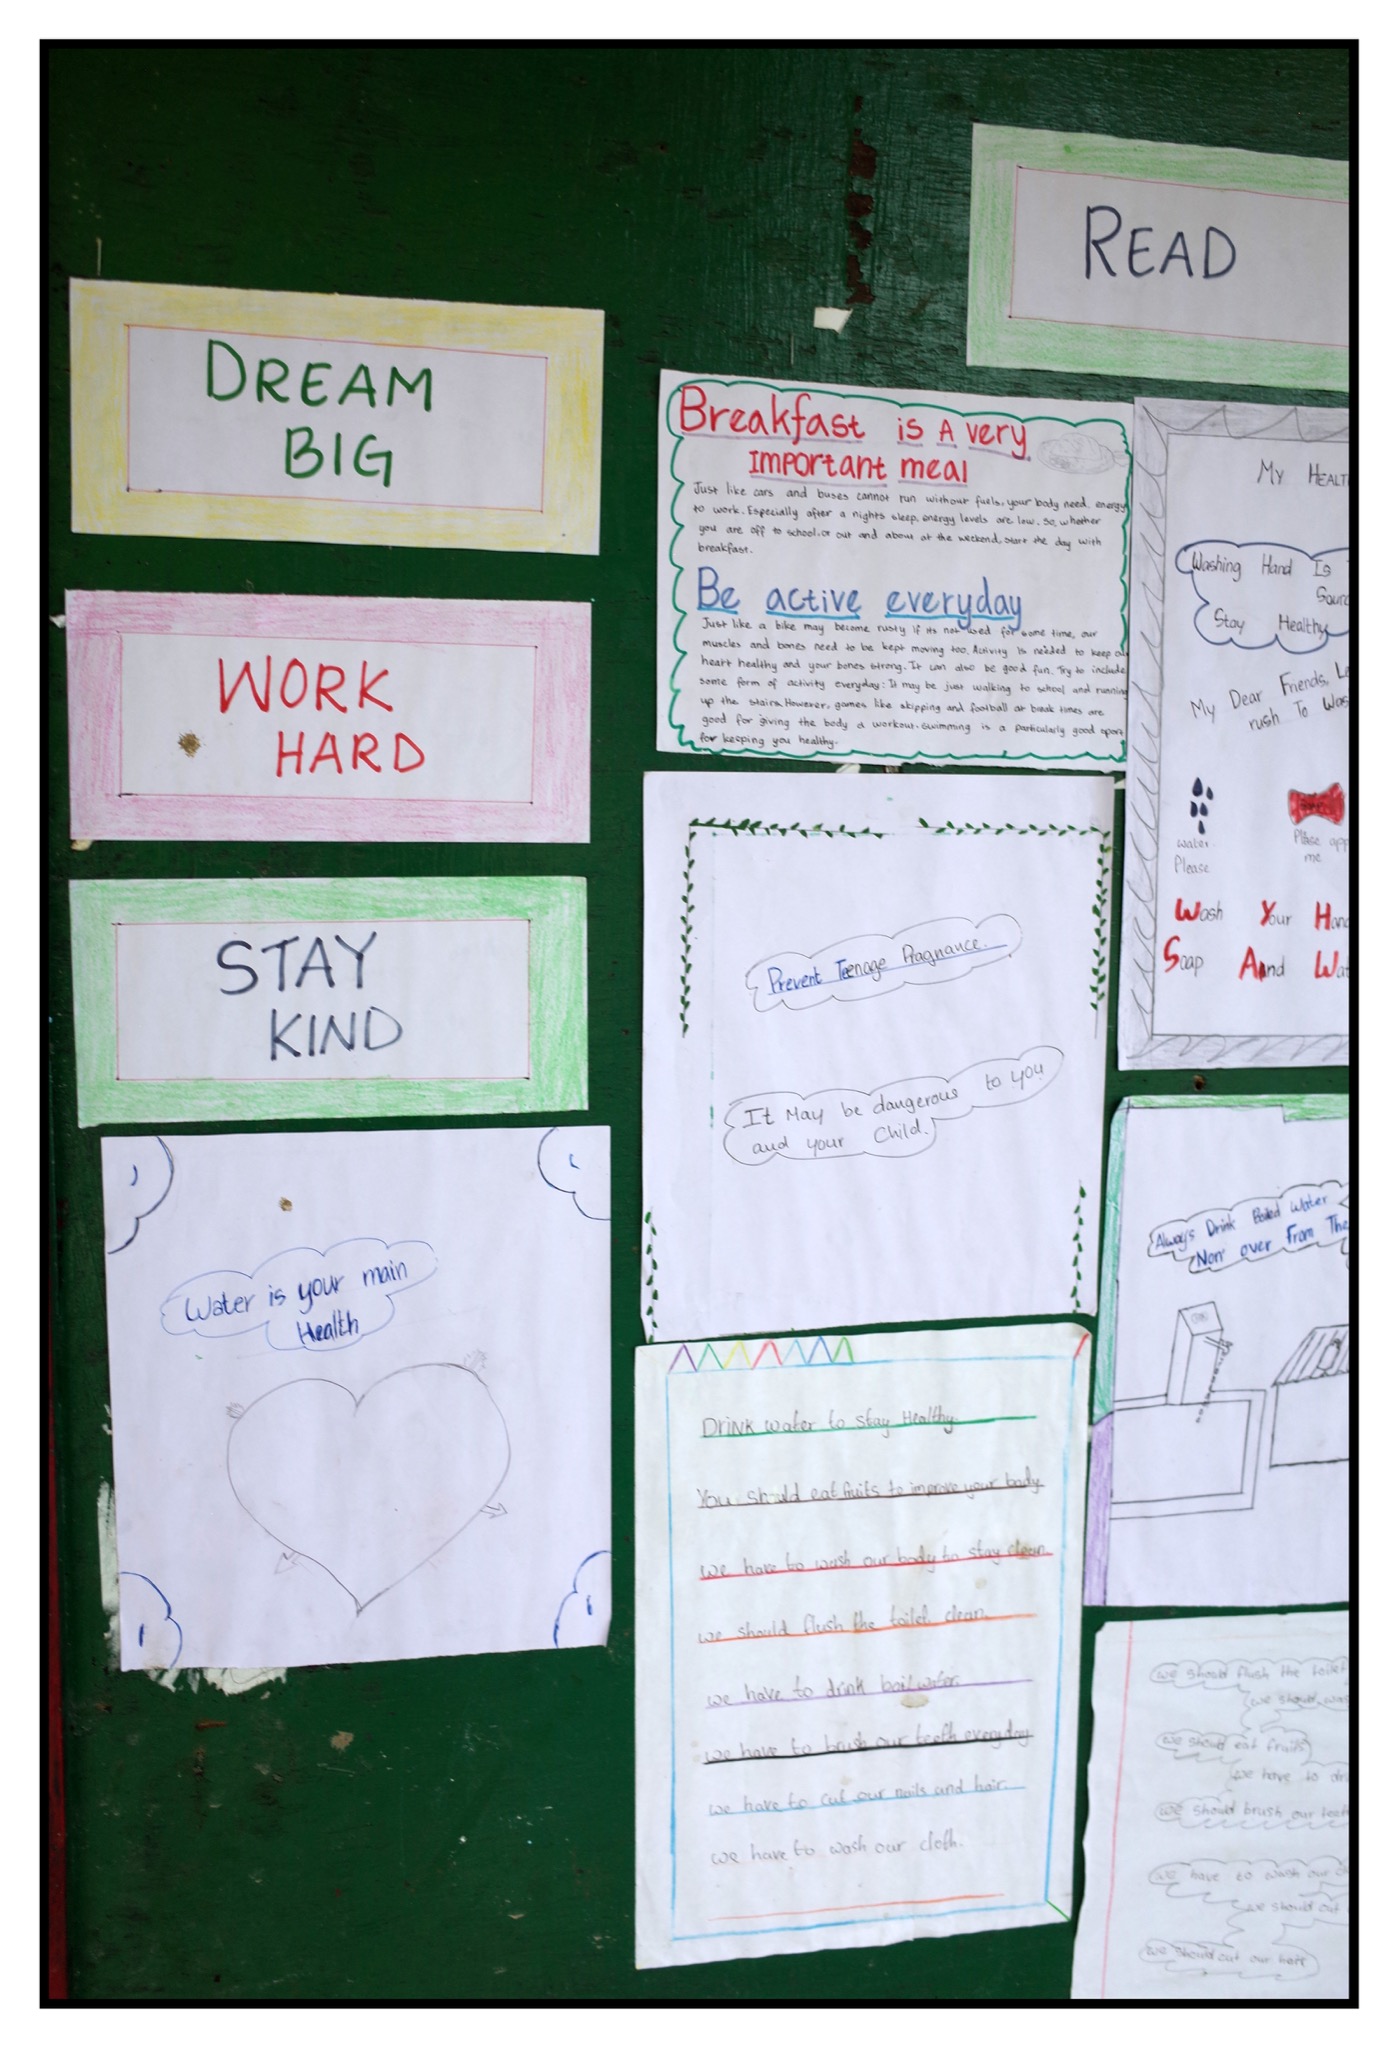 DREAM
BIG
WORK
HARD
STAY
KIND
Water is your main
Health
READ
Breakfast is A very
Important meal
Just like cars and buses cannot run without fuels, your body need energy
to work. Especially after a nights sleep, energy levels are low. So, whether
you are off to school, or out and about at the weekend, start the day with
breakfast.
Be active everyday
Just like a bike may become rusty if its not used for some time, our
muscles and bones need to be kept moving too. Activity is needed to keep
heart healthy and your bones strong. It can also be good fun. Try to include
some form of activity everyday: It may be just walking to school and running
up the stairs. However, games like skipping and football at break times are
good for giving the body a workout. Swimming is a particularly good sport
for keeping you healthy.
Prevent Teenage Pragnance.
It May be dangerous to you
and your Child.
Drink water to stay Healthy.
You should eat fruits to improve your body
we have to wash our body to stay clean.
we should flush the toilet clean.
we have to drink boil water.
we have to brush our teeth everyday
we have to cut our nails and hair.
we have to wash our cloth.
My
Washing Hand Is
Stay Healthy
My Dear Friends,
rush To
water
Please
Please
me
Wash Your
Soap And
Always Drink Boiled Water
Non over From The
we should flush the toilet
we should
we should eat fruits
we have to
we should brush our
we have to wash our
we should cut
we should cut our